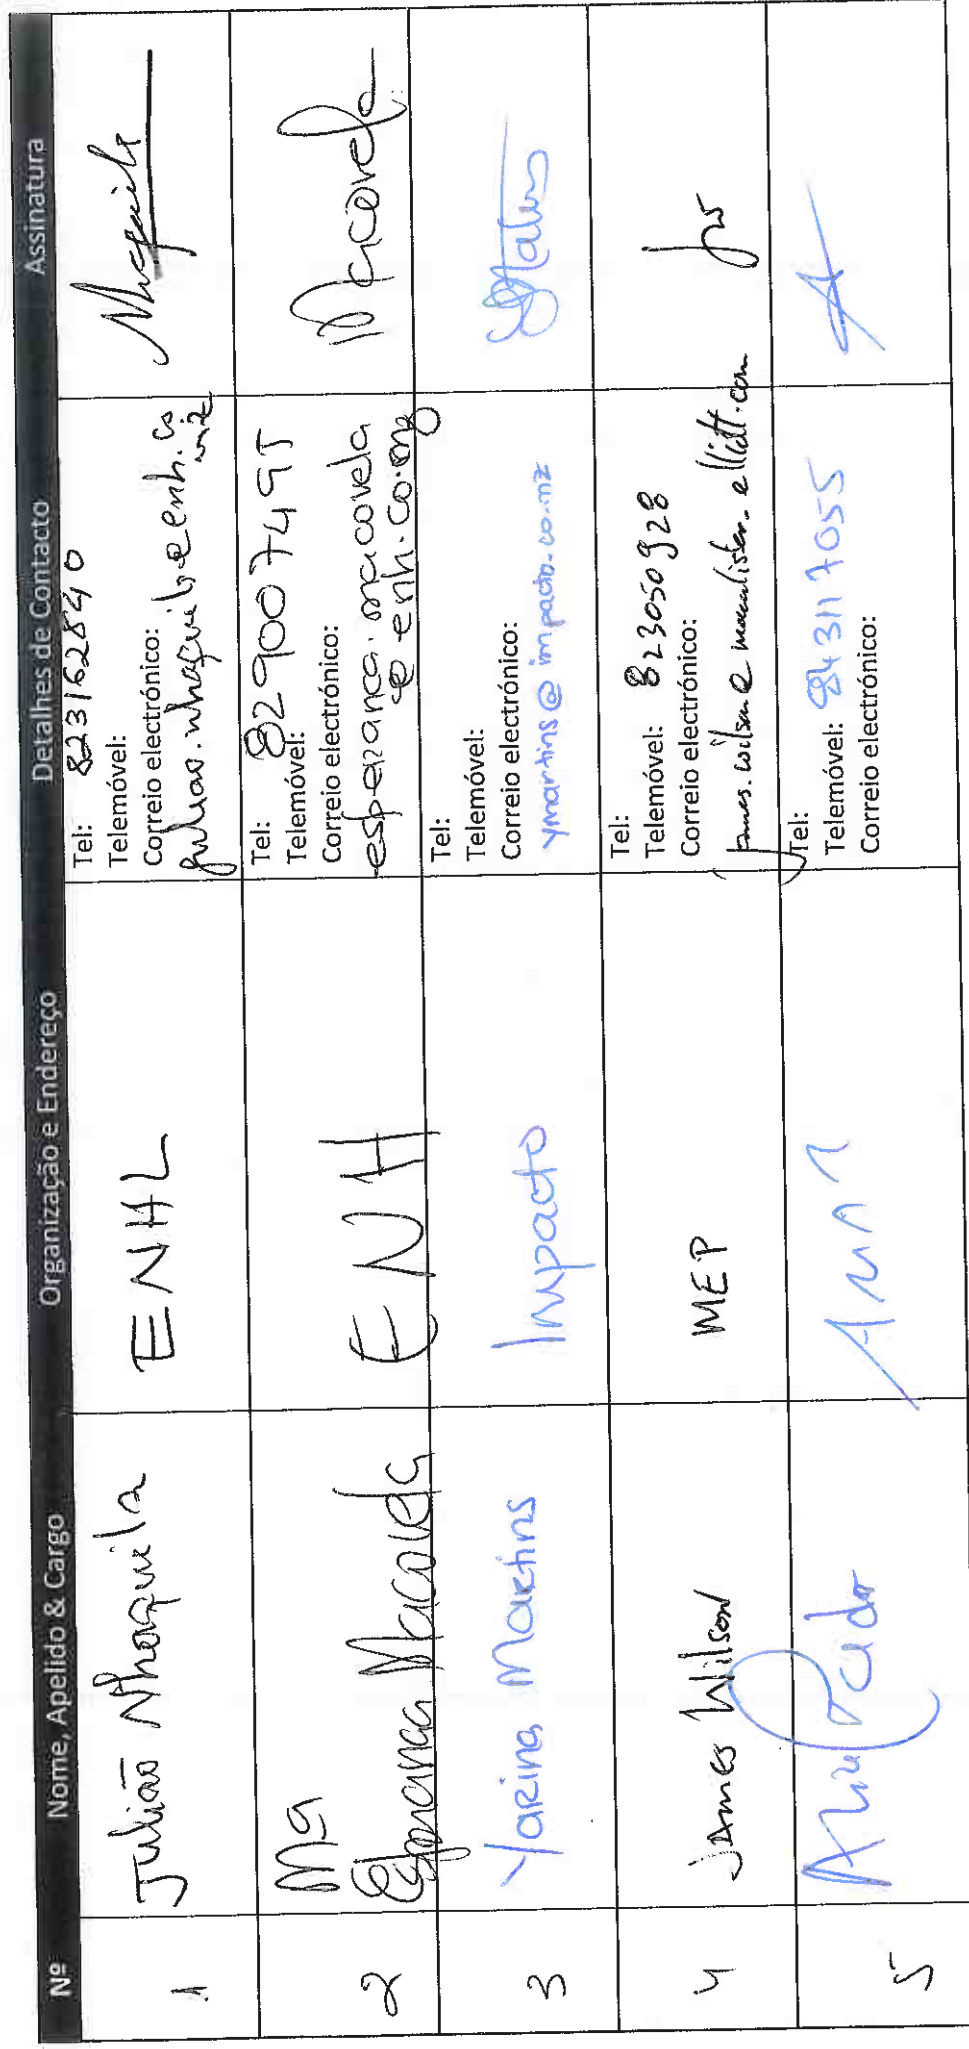 Nº Nome, Apelido & Cargo Organização e Endereço Detalhes de Contacto Assinatura
1 Julião Nhaquila ENHL
Tel: 823162840
Telemóvel:
Correio electrónico:
juliao.nhaquila@enh.co
2 Esperança Macovela ENH
Tel: 829007495
Telemóvel:
Correio electrónico:
esperanca.macovela
@enh.co.mz
Macovela
3 Yarina Martins Impacto
Tel:
Telemóvel:
Correio electrónico:
ymartins@impacto.co.mz
4 James Wilson MEP
Tel:
Telemóvel: 823050928
Correio electrónico:
james.wilson@macalister-elliott.com
JW
5
Tel:
Telemóvel: 843117055
Correio electrónico: